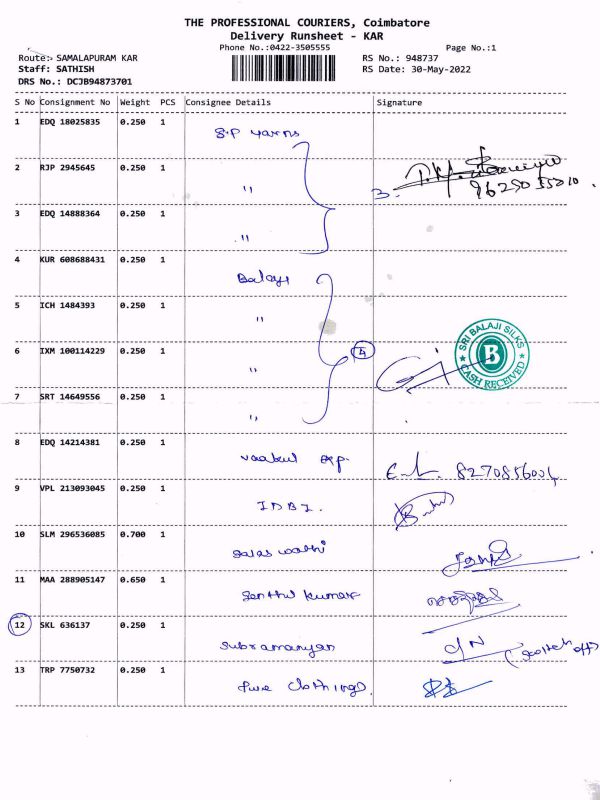 THE PROFESSIONAL COURIERS, Coimbatore
Delivery Runsheet - KAR
Phone No.:0422-3505555 Page No.:1
Route:- SAMALAPURAM KAR RS No.: 948737
Staff: SATHISH RS Date: 30-May-2022
DRS No.: DCJB94873701
S No Consignment No Weight PCS Consignee Details Signature
1 EDQ 18025835 0.250 1 S.P yarns
2 RJP 2945645 0.250 1 " 3.
3 EDQ 14888364 0.250 1 "
4 KUR 608688431 0.250 1 Balaji
5 ICH 1484393 0.250 1 "
6 IXM 100114229 0.250 1 " 4 SRI BALAJI SILKS B CASH RECEIVED
7 SRT 14649556 0.250 1 "
8 EDQ 14214381 0.250 1 exp
9 VPL 213093045 0.250 1 IDBI.
10 SLM 296536085 0.700 1
11 MAA 288905147 0.650 1 Senthil kumar
12 SKL 636137 0.250 1 Subramanyan (switch off)
13 TRP 7750732 0.250 1 clothings.